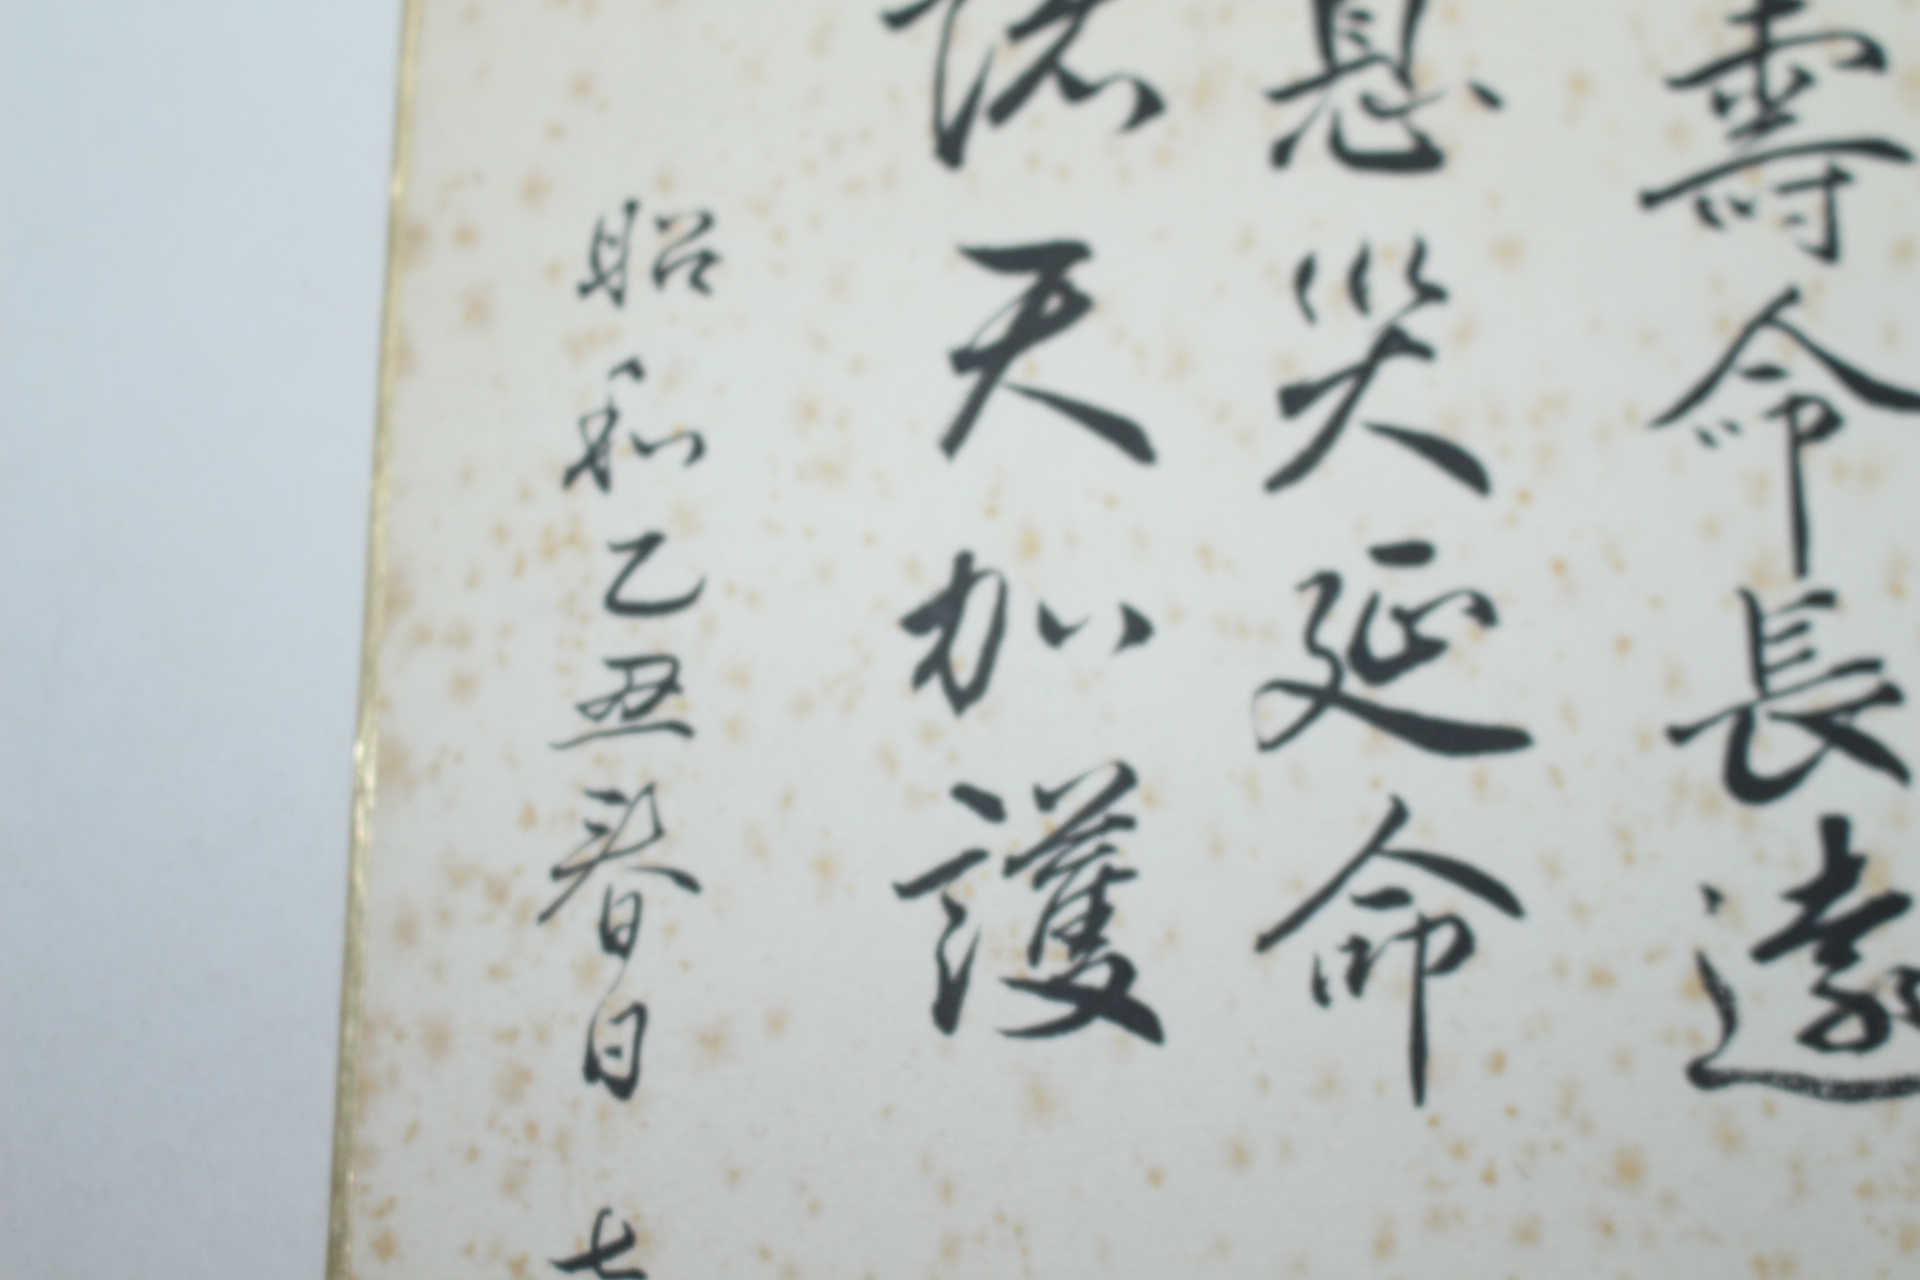 壽命長遠
息災延命
諸天加護
昭和乙丑春日